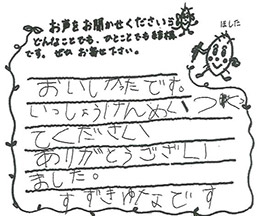 お声をお聞かせください
どんなことでも、ひとことでも結構
です。ぜひ お寄せ下さい。
ほした
おいしかったです。
いっしょうけんめいつくっ
てくださり
ありがとうござい
ました。
すずきゆなです